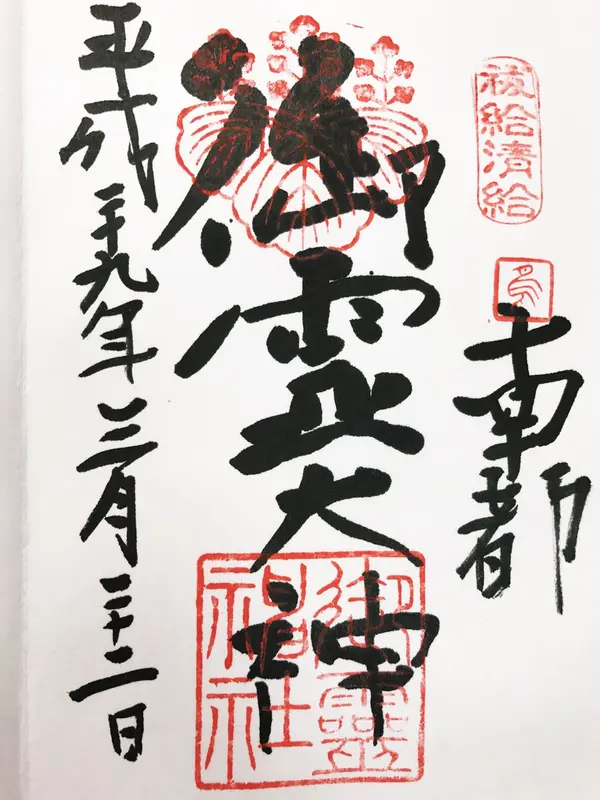 祓給清給
南都
御霊大神
御靈
神社
平成二十九年三月二十二日